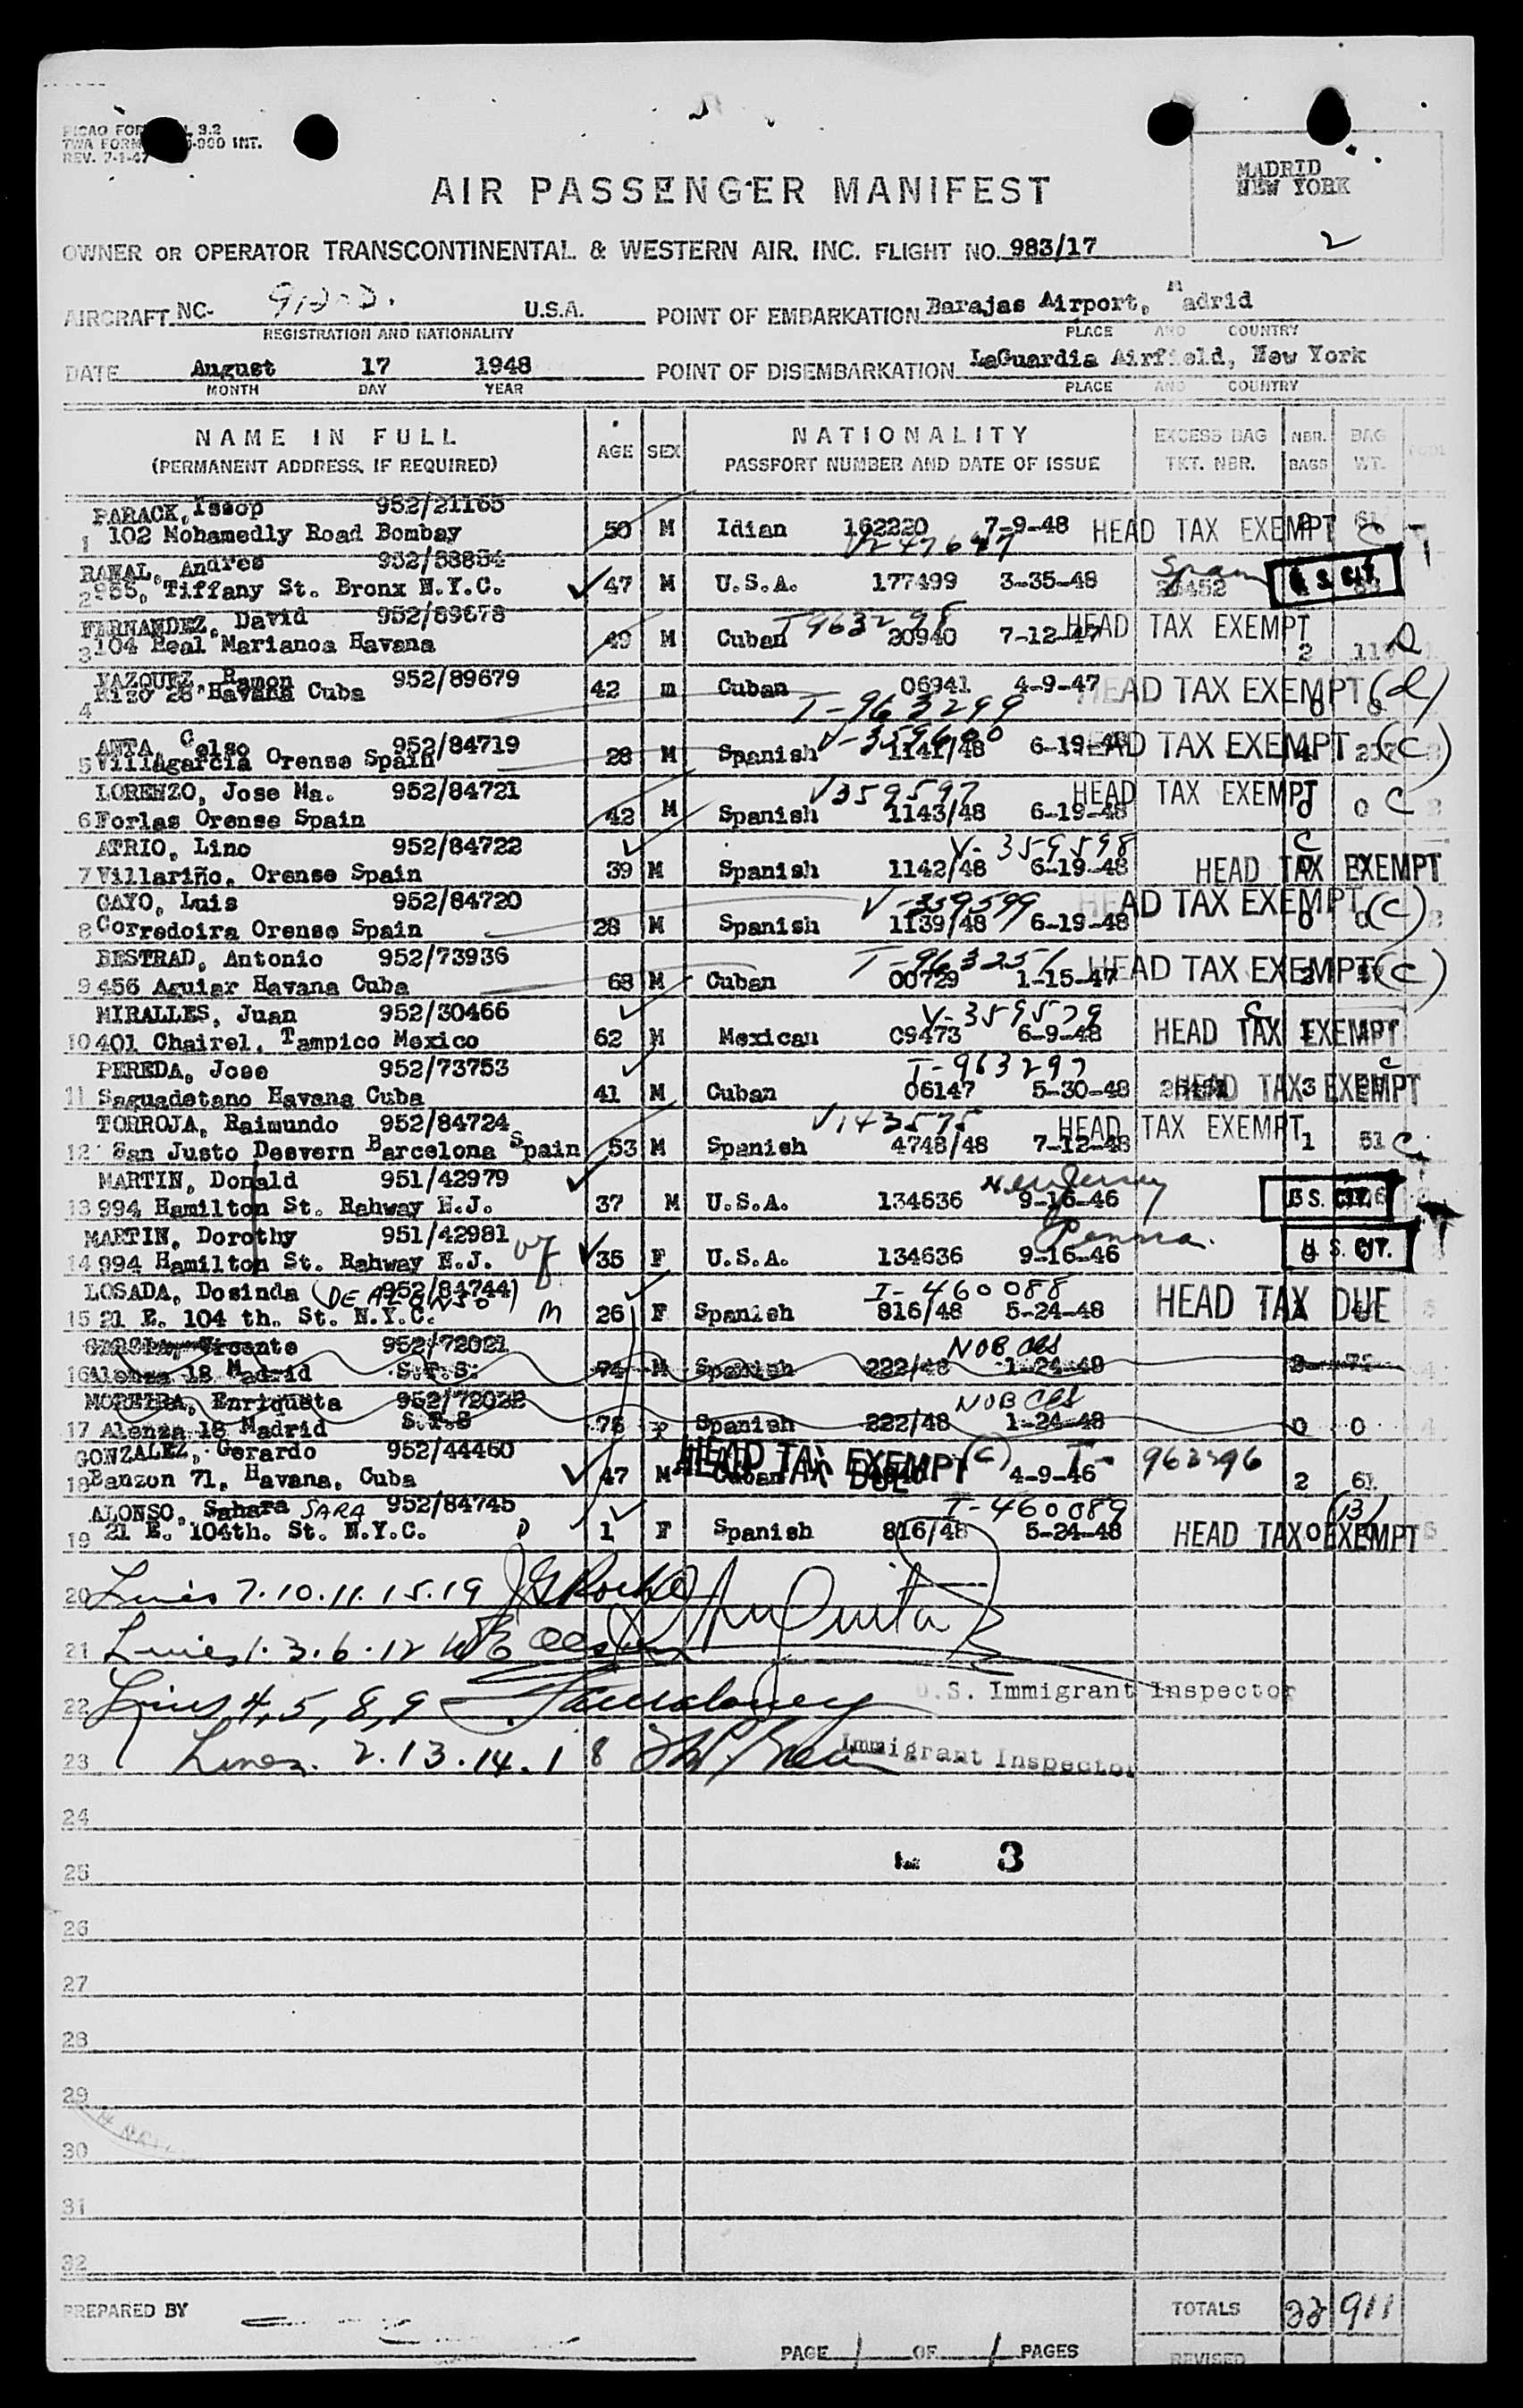 PICAO FOR 3.2
TWA FORM -900 INT.
REV. 7-1-47
MADRID
NEW YORK
2
AIR PASSENGER MANIFEST
OWNER OR OPERATOR TRANSCONTINENTAL & WESTERN AIR. INC. FLIGHT NO. 983/17
AIRCRAFT NC- U.S.A. POINT OF EMBARKATION Barajas Airport, Madrid
REGISTRATION AND NATIONALITY PLACE AND COUNTRY
DATE August 17 1948 POINT OF DISEMBARKATION LaGuardia Airfield, New York
MONTH DAY YEAR PLACE AND COUNTRY
NAME IN FULL AGE SEX NATIONALITY EXCESS BAG NBR. BAG
(PERMANENT ADDRESS, IF REQUIRED) PASSPORT NUMBER AND DATE OF ISSUE TKT. NBR. BAGS WT.
PARACK, Issop 952/21165
1 102 Mohamedly Road Bombay 50 M Idian 162220 7-9-48 HEAD TAX EXEMPT C
V247647
RAMAL, Andres 952/38854
2 955, Tiffany St. Bronx N.Y.C. 47 M U.S.A. 177499 3-35-48 Spain 28452 U.S. CIT.
FERNANDEZ, David 952/89678
3 104 Real Marianoa Havana 49 M Cuban T963298 20940 7-12-47 HEAD TAX EXEMPT 2
VAZQUEZ, Ramon 952/89679
4 Rizo 28 Havana Cuba 42 m Cuban 06941 4-9-47 HEAD TAX EXEMPT (d)
T-963299
ANTA, Celso 952/84719
5 Villagarcia Orense Spain 28 M Spanish V-359600 1141/48 6-19-48 HEAD TAX EXEMPT (C)
LORENZO, Jose Ma. 952/84721 V359597
6 Forlas Orense Spain 42 M Spanish 1143/48 6-19-48 HEAD TAX EXEMPT 0 0 C
ATRIO, Lino 952/84722 V-359598 C
7 Villariño, Orense Spain 39 M Spanish 1142/48 6-19-48 HEAD TAX EXEMPT
GAYO, Luis 952/84720 V-359599
8 Corredoira Orense Spain 28 M Spanish 1139/48 6-19-48 HEAD TAX EXEMPT (C)
BESTRAD, Antonio 952/73936 T-963251
9 456 Aguiar Havana Cuba 68 M Cuban 00729 1-15-47 HEAD TAX EXEMPT (C)
MIRALLES, Juan 952/30466 V-359579 C
10 401 Chairel, Tampico Mexico 62 M Mexican C9473 6-9-48 HEAD TAX EXEMPT
PEREDA, Jose 952/73753 T-963297 C
11 Saguadetano Havana Cuba 41 M Cuban 06147 5-30-48 HEAD TAX EXEMPT 3
TORROJA, Raimundo 952/84724 V143575
12 San Justo Desvern Barcelona Spain 53 M Spanish 4748/48 7-12-48 HEAD TAX EXEMPT 1 51 C
MARTIN, Donald 951/42979 New Jersey
13 994 Hamilton St. Rahway N.J. 37 M U.S.A. 134636 9-16-46 U.S. CIT.
MARTIN, Dorothy 951/42981 Penna.
14 994 Hamilton St. Rahway N.J. 35 F U.S.A. 134636 9-16-46 U.S. CIT.
LOSADA, Dosinda (DE ALONSO) 952/84744 T-460088
15 21 E. 104 th. St. N.Y.C. M 26 F Spanish 816/48 5-24-48 HEAD TAX DUE
GARCIA, Vicente 952/72021 NOB
16 Alenza 18 Madrid S.P.S. 74 M Spanish 222/48 1-24-48
MOREIRA, Enriqueta 952/72022 NOB
17 Alenza 18 Madrid S.P.S 75 F Spanish 222/48 1-24-48 0 0
GONZALEZ, Gerardo 952/44460 HEAD TAX EXEMPT (C) T-963296
18 Banzon 71, Havana, Cuba 47 M Cuban 4-9-46 2 61
ALONSO, Sahara SARA 952/84745 T-460089 (B)
19 21 E. 104th. St. N.Y.C. 1 F Spanish 816/48 5-24-48 HEAD TAX EXEMPT
20 Lines 7.10.11.15.19
21 Lines 1.3.6.12
22 Lines 4,5,8,9 U.S. Immigrant Inspector
23 Lines. 2.13.14.18 Immigrant Inspector
24
25 3
26
27
28
29
30
31
32
PREPARED BY TOTALS 22 911
PAGE 1 OF 1 PAGES REVISED